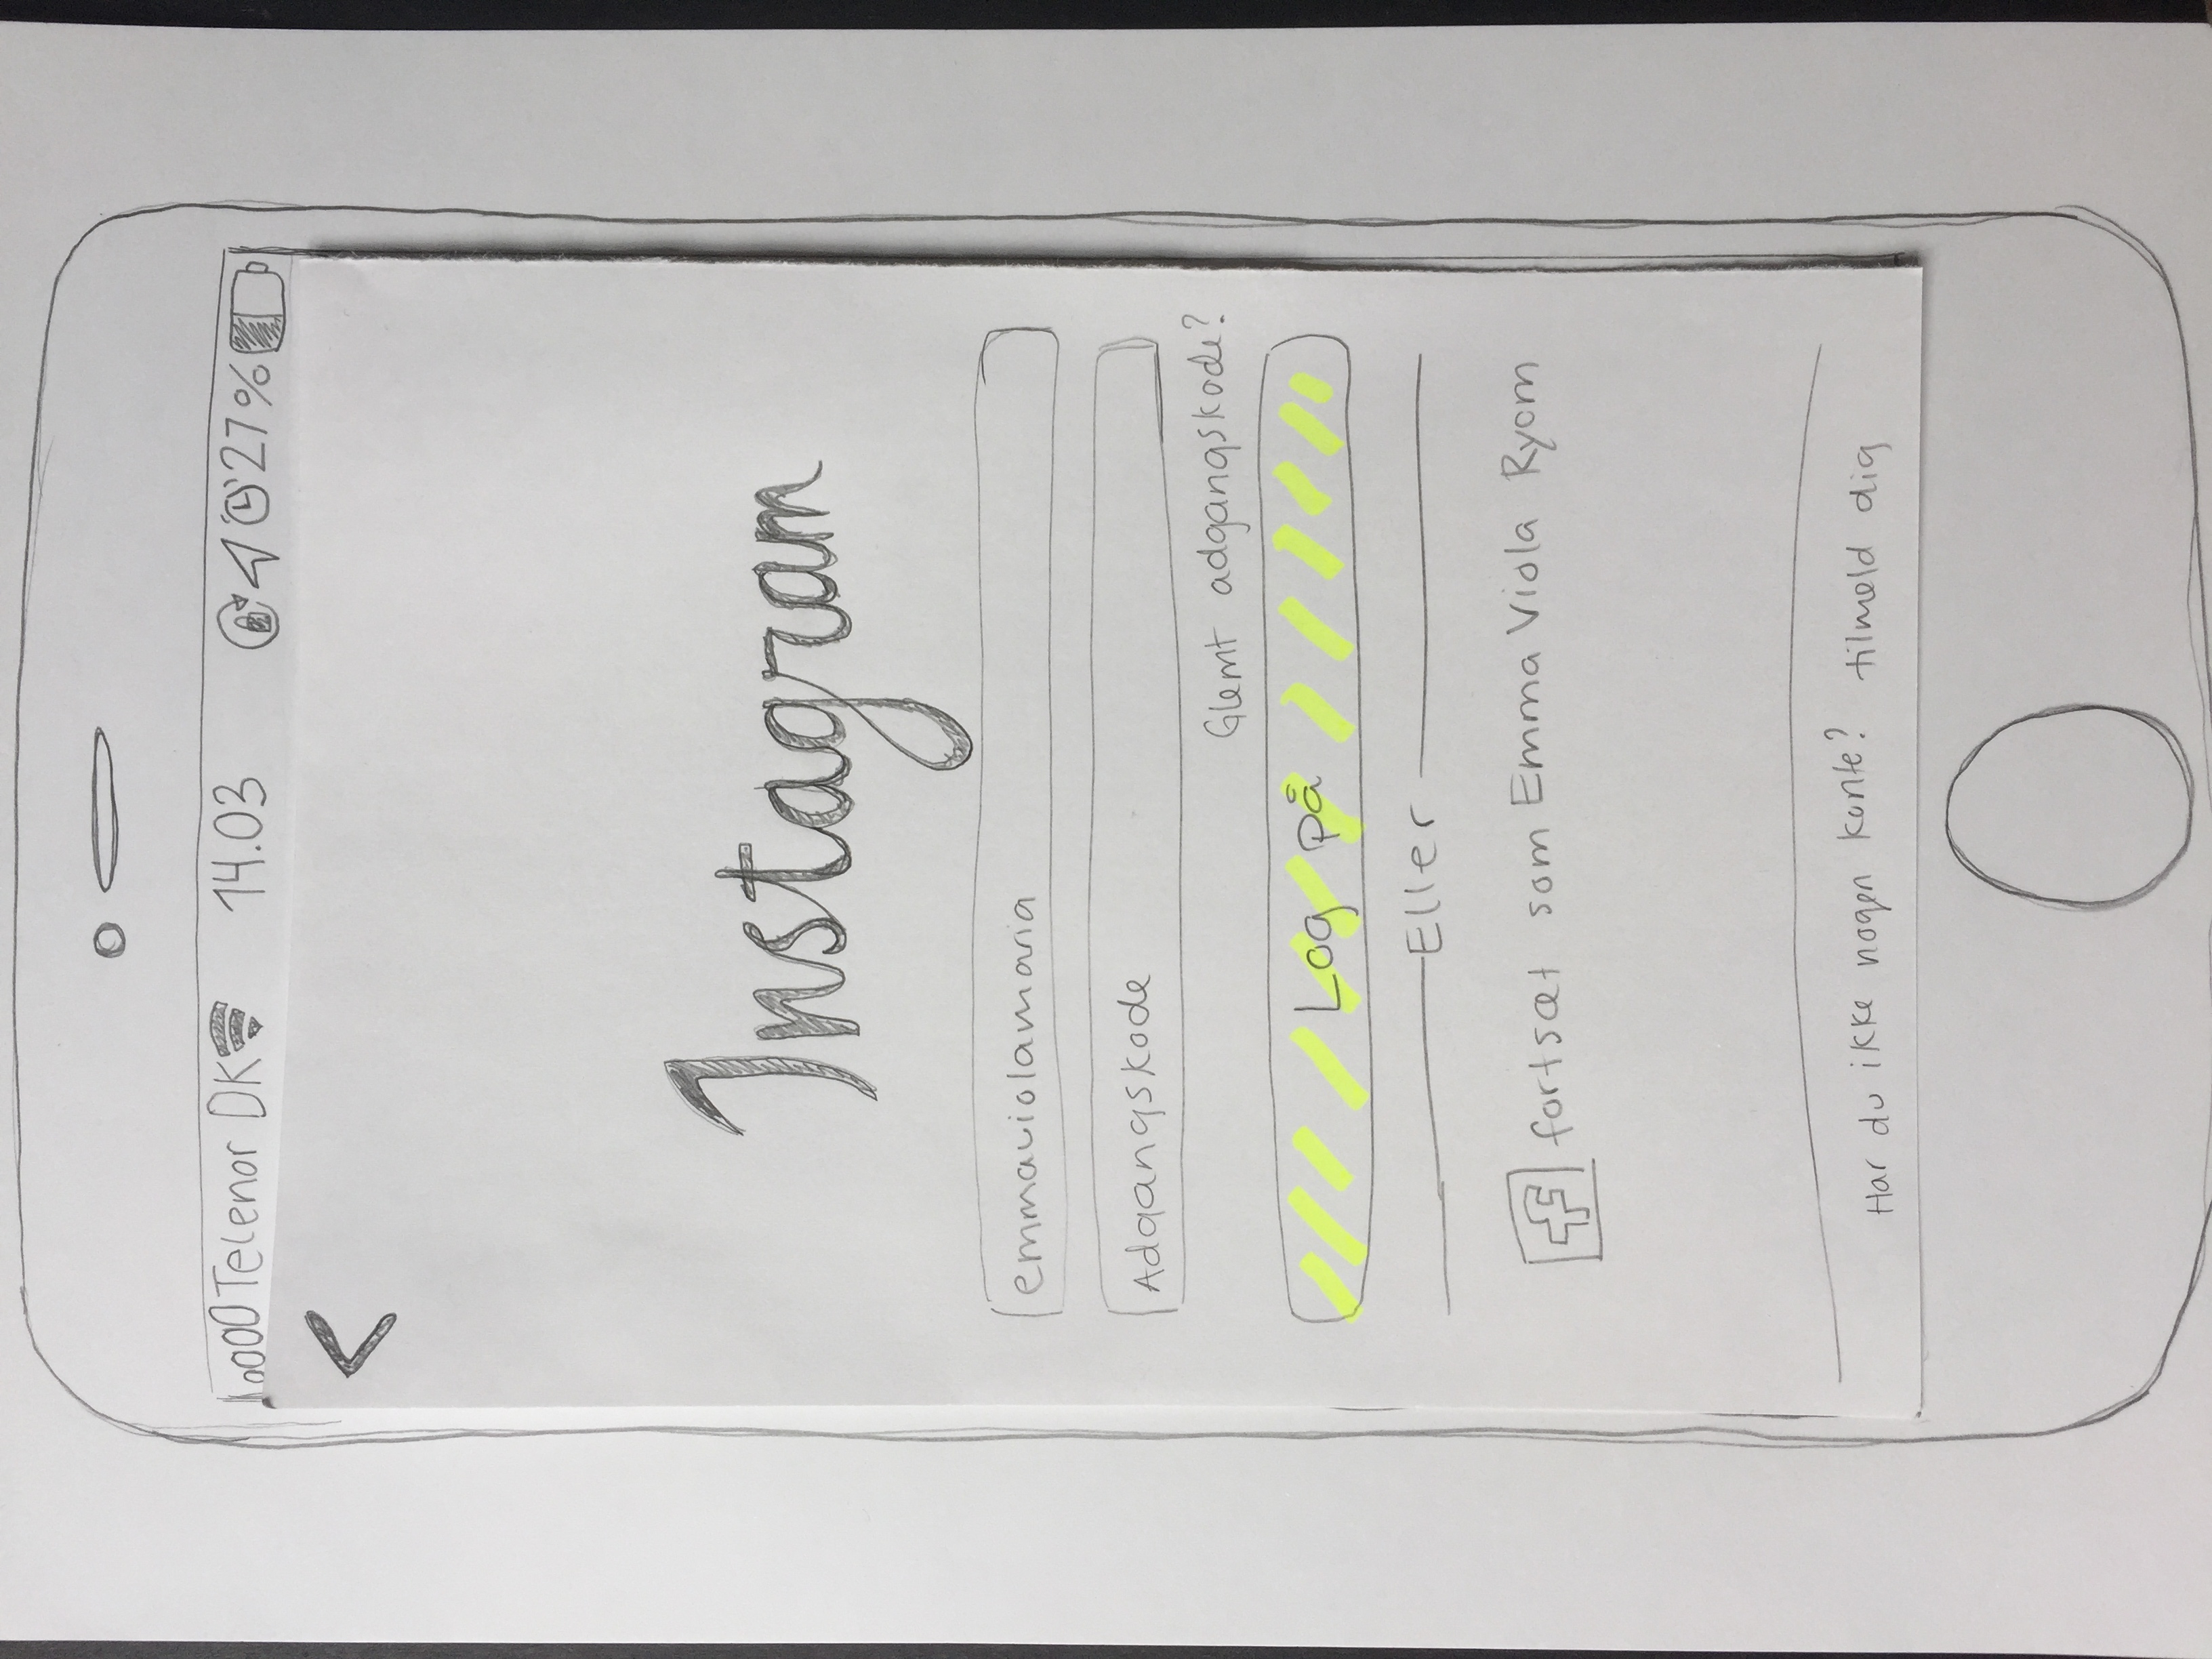 Telenor DK 14.03 27%
Instagram
emmaviolamaria
Adgangskode
Glemt adgangskode?
Log på
Eller
f fortsæt som Emma Viola Ryom
Har du ikke nogen konto? tilmeld dig